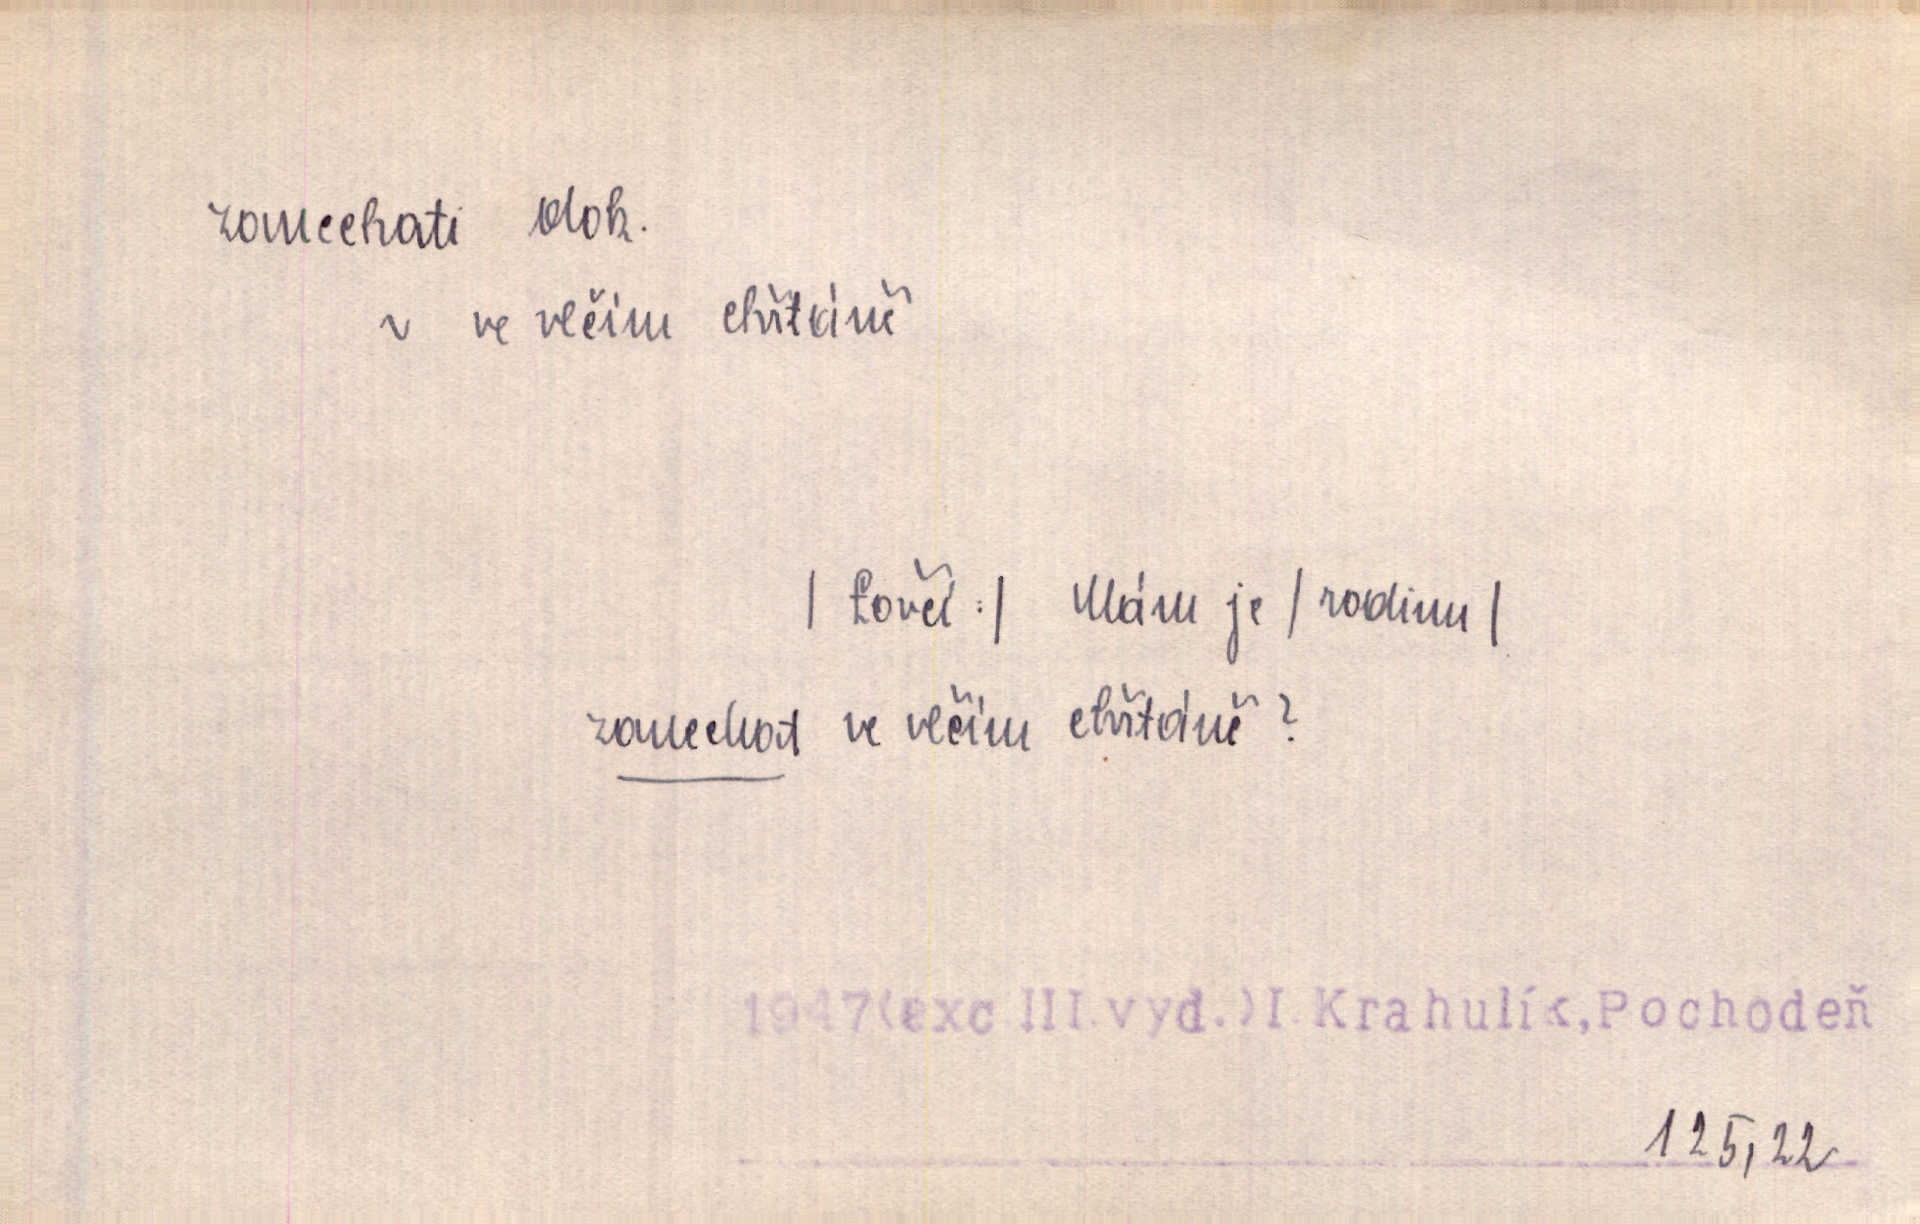 zanechati dok.
~ ve vlčím chřtáně
/ Lovčí : / Mám je / rodinu /
zanechat ve vlčím chřtáně ?
1947(exc.III.vyd.)I.Krahulík,Pochodeň
125,22